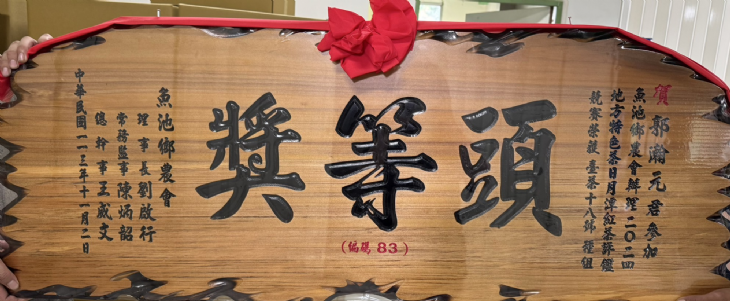 賀 郭瀚元君參加
魚池鄉農會辦理二〇二四
地方特色茶日月潭紅茶評鑑
競賽榮穫 臺茶十八號種組
頭等獎
(編號 83)
魚池鄉農會
理事長 劉啟行
常務監事 陳炳韶
總幹事 王威文
中華民國一一三年十一月二日